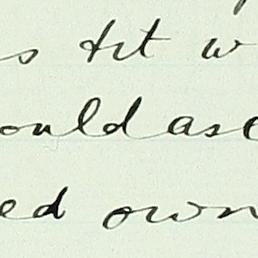 s tht w
ould asc
ed own